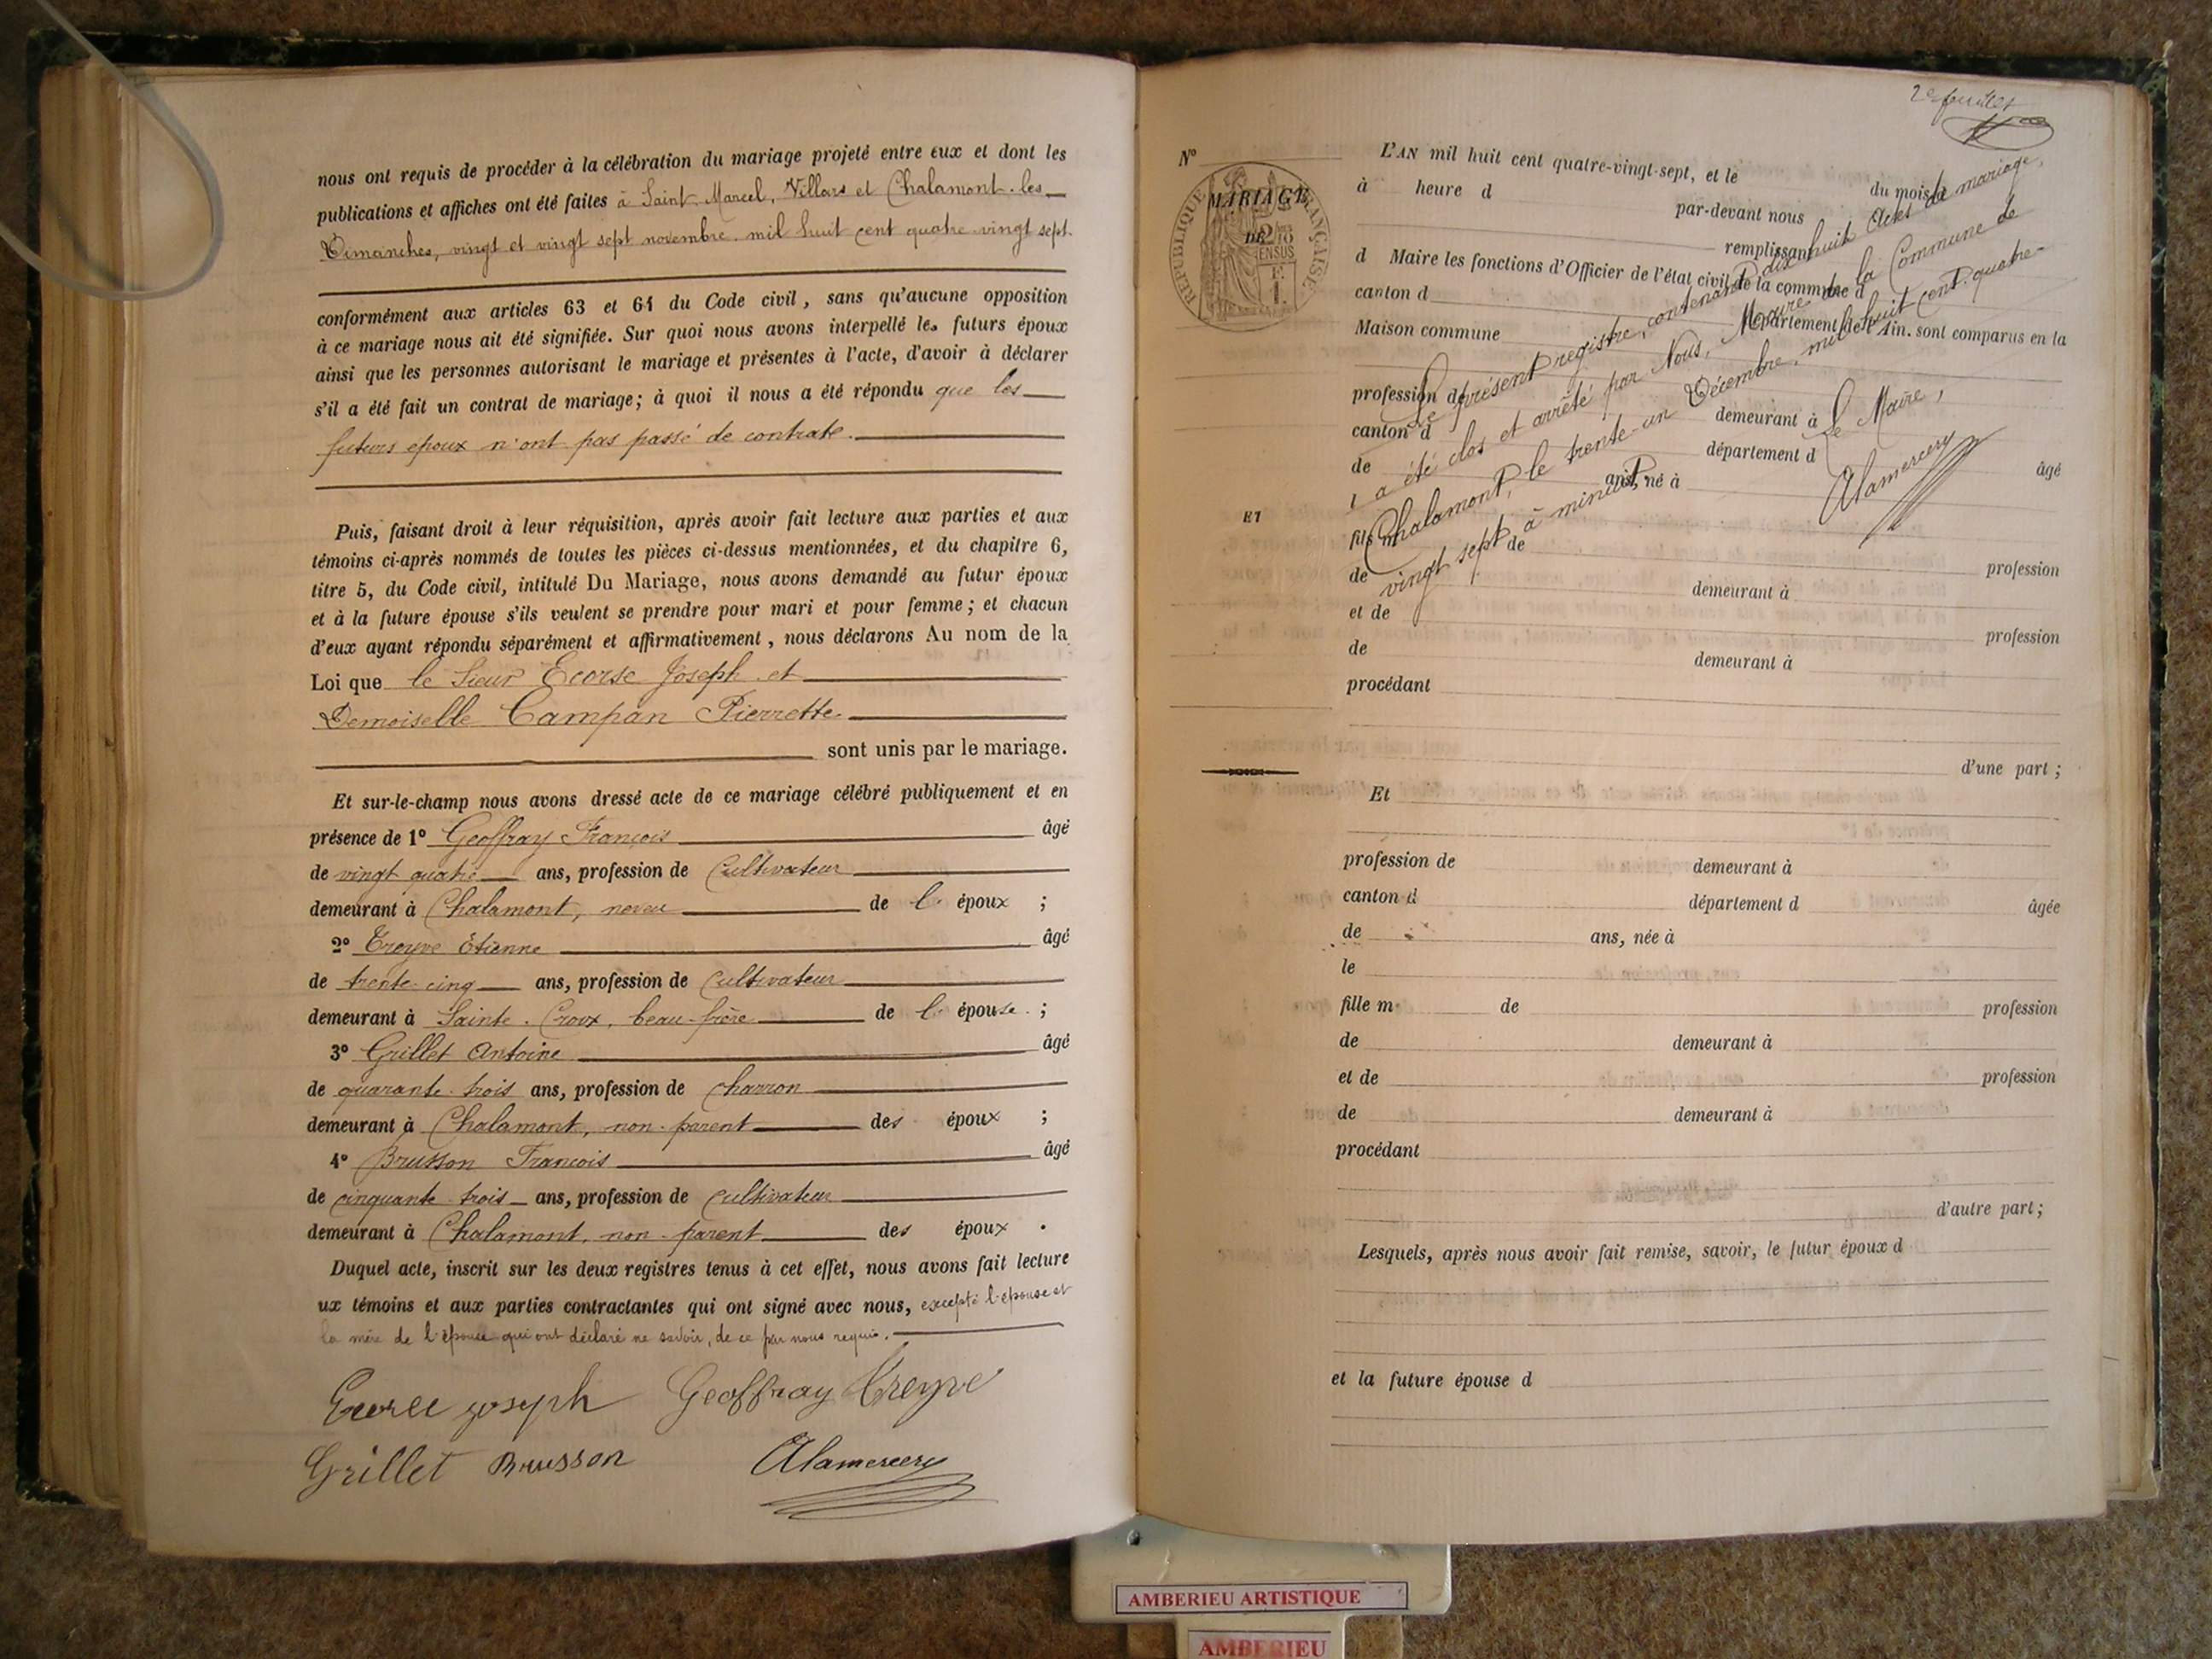 nous ont requis de procéder à la célébration du mariage projeté entre eux et dont les
publications et affiches ont été faites à Saint Marcel, Villars et Chalamont. les
Dimanches, vingt et vingt sept novembre mil huit cent quatre-vingt sept.
conformément aux articles 63 et 64 du Code civil, sans qu'aucune opposition
à ce mariage nous ait été signifiée. Sur quoi nous avons interpellé les futurs époux
ainsi que les personnes autorisant le mariage et présentes à l'acte, d'avoir à déclarer
s'il a été fait un contrat de mariage; à quoi il nous a été répondu que les
futurs époux n'ont pas passé de contrate.
Puis, faisant droit à leur réquisition, après avoir fait lecture aux parties et aux
témoins ci-après nommés de toutes les pièces ci-dessus mentionnées, et du chapitre 6,
titre 5, du Code civil, intitulé Du Mariage, nous avons demandé au futur époux
et à la future épouse s'ils veulent se prendre pour mari et pour femme; et chacun
d'eux ayant répondu séparément et affirmativement, nous déclarons Au nom de la
Loi que le Sieur Ecorse Joseph et
Demoiselle Campan Pierrette
sont unis par le mariage.
Et sur-le-champ nous avons dressé acte de ce mariage célébré publiquement et en
présence de 1º Geoffray François âgé
de vingt quatre ans, profession de Cultivateur
demeurant à Chalamont, neveu de l' époux ;
2º Treyve Étienne âgé
de trente-cinq ans, profession de Cultivateur
demeurant à Sainte-Croix, beau-frère de l' épouse ;
3º Grillet Antoine âgé
de quarante-trois ans, profession de charron
demeurant à Chalamont, non-parent des époux ;
4º Brusson François âgé
de cinquante-trois ans, profession de Cultivateur
demeurant à Chalamont, non-parent des époux .
Duquel acte, inscrit sur les deux registres tenus à cet effet, nous avons fait lecture
ux témoins et aux parties contractantes qui ont signé avec nous, excepté l'épouse et
la mère de l'épouse qui ont déclaré ne savoir, de ce par nous requis.
joseph Geoffray Treyve
Grillet Brusson Alamercery
2e feuillet
Nº
MARIAGE
DE
RÉPUBLIQUE FRANÇAISE
ET
L'AN mil huit cent quatre-vingt-sept, et le du mois d
à heure d par-devant nous
remplissant
d Maire les fonctions d'Officier de l'état civil de la commune d
canton d département de l'Ain. sont comparus en la
Maison commune
profession de
canton d demeurant à
de département d âgé
ans, né à
l
fils m de
de profession
et de demeurant à
de profession
demeurant à
procédant
d'une part ;
Le présent registre, contenant dix huit Actes de mariage,
a été clos et arrêté par Nous, Maire de la Commune de
Chalamont, le trente-un Décembre, mil huit cent quatre-
vingt sept à minuit.
Le Maire,
Alamercery
Et
profession de demeurant à
canton d département d âgée
de ans, née à
le
fille m de profession
de demeurant à
et de profession
de demeurant à
procédant
d'autre part ;
Lesquels, après nous avoir fait remise, savoir, le futur époux d
et la future épouse d
AMBERIEU ARTISTIQUE
AMBERIEU